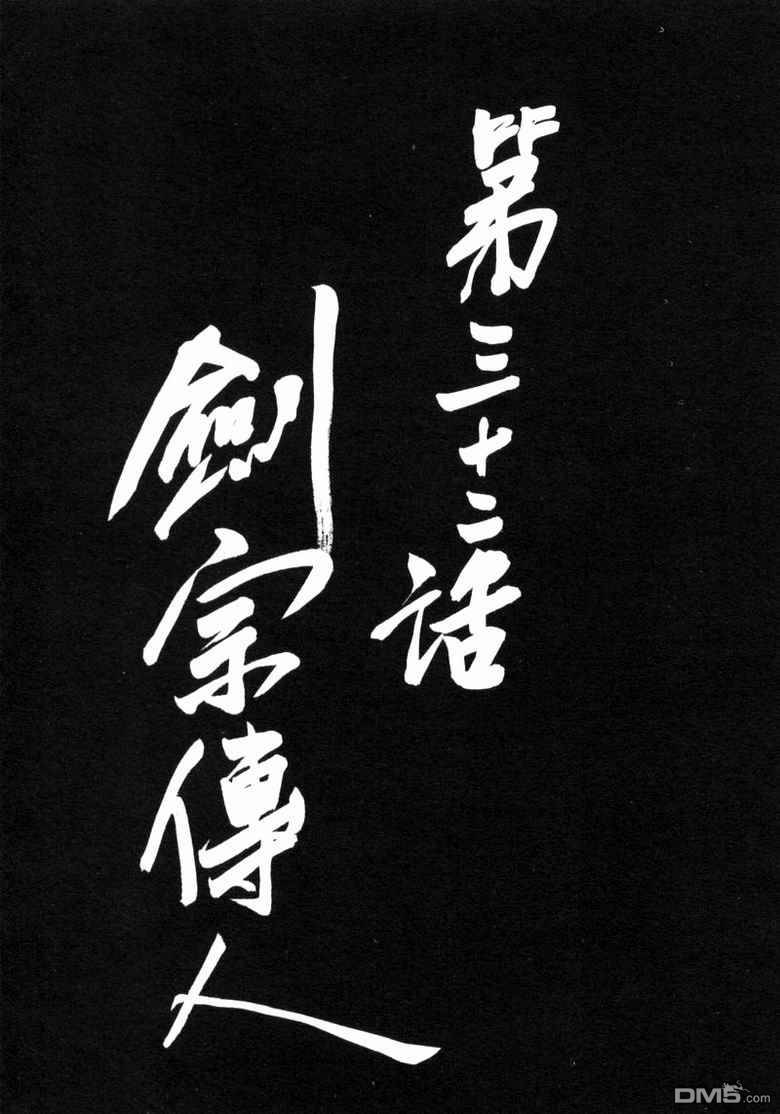 第三十二話
劍宗傳人
DM5.com